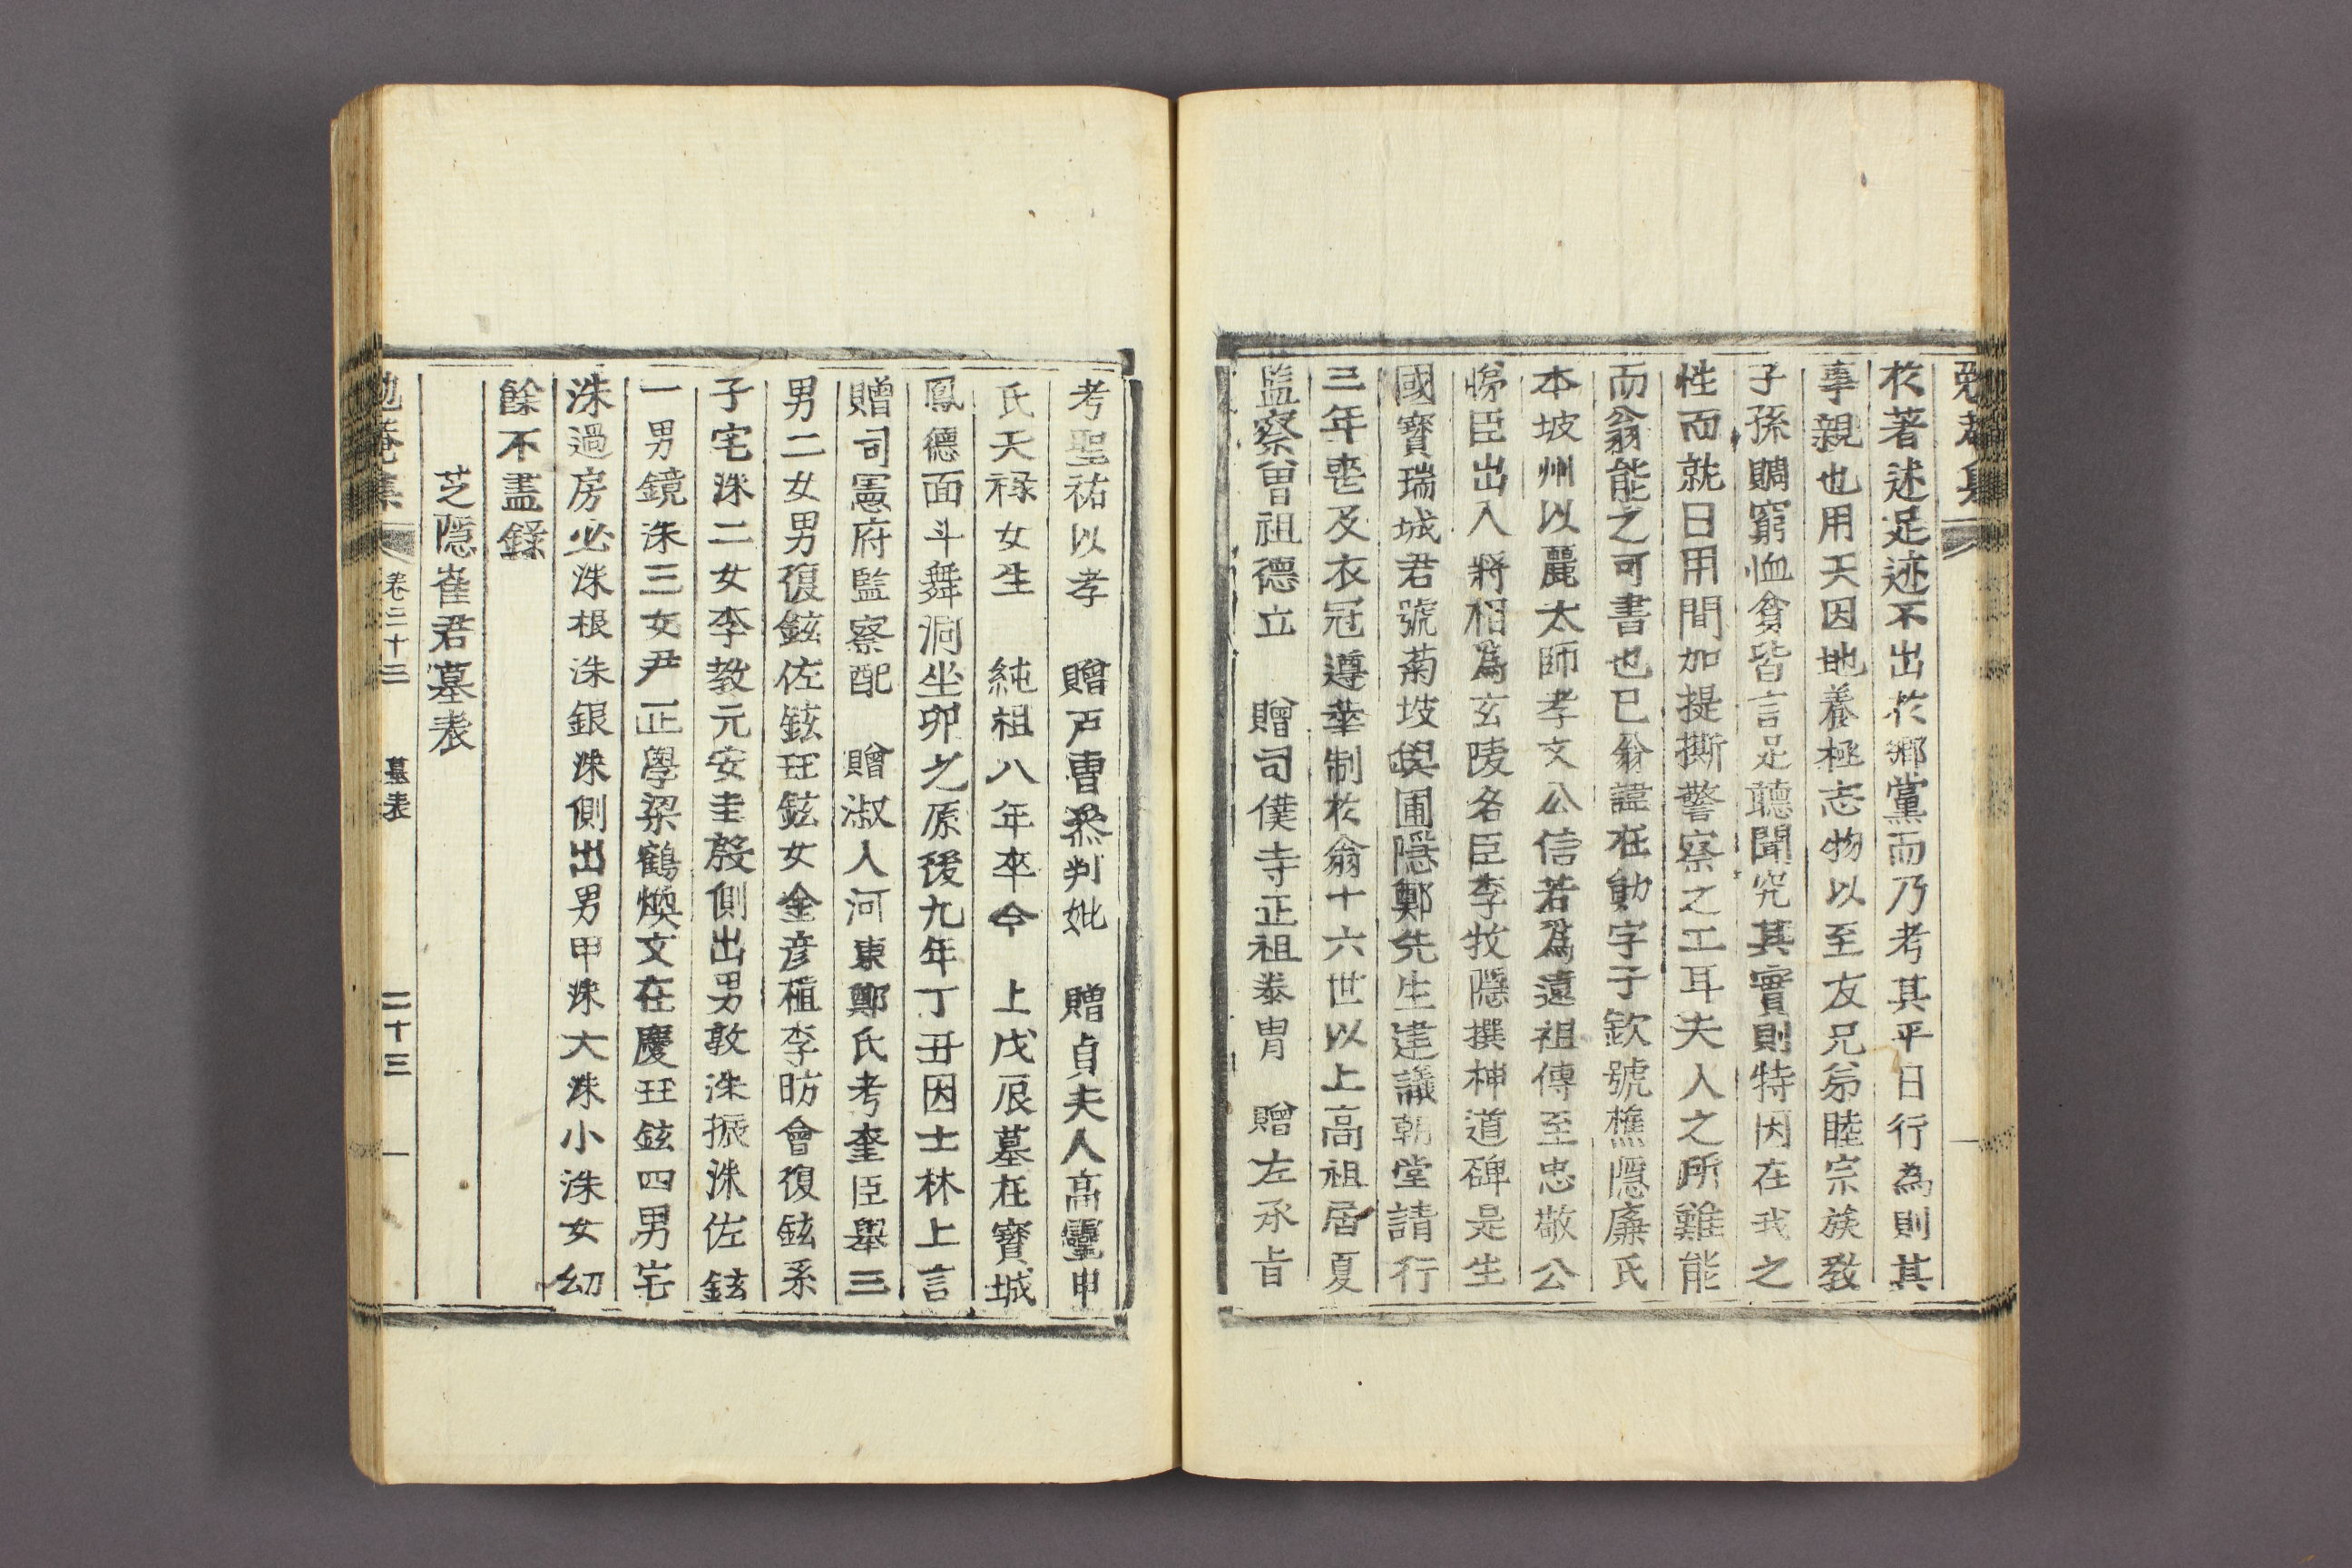 於著述足迹不出於鄕黨而乃考其平日行為則其
事親也用天因地養極志物以至友兄弟睦宗族敎
子孫賙窮恤貧皆言足聽聞究其實則特因在我之
性而就日用間加提撕警察之工耳夫人之所難能
而翁能之可書也已翁諱在勛字子欽號樵隱廉氏
本坡州以麗太師孝文公信若爲遠祖傳至忠敬公
悌臣出入將相爲玄陵名臣李牧隱撰神道碑是生
國寶瑞城君號菊坡與圃隱鄭先生建議朝堂請行
三年喪及衣冠遵華制於翁十六世以上高祖居夏
監察曾祖德立 贈司僕寺正祖泰胄 贈左承旨
考聖祐以孝 贈戶曹叅判妣 贈貞夫人高靈申
氏天祿女生 純祖八年卒今 上戊辰墓在寶城
鳳德面斗舞洞坐卯之原後九年丁丑因士林上言
贈司憲府監察配 贈淑人河東鄭氏考奎臣舉三
男二女男復鉉佐鉉珏鉉女金彦植李昉會復鉉系
子宅洙二女李敎元安圭殷側出男敦洙振洙佐鉉
一男鏡洙三女尹正學梁鶴煥文在慶珏鉉四男宅
洙過房必洙根洙銀洙側出男甲洙大洙小洙女幼
餘不盡錄
芝隱崔君墓表
勉菴集 卷三十三 墓表 二十三